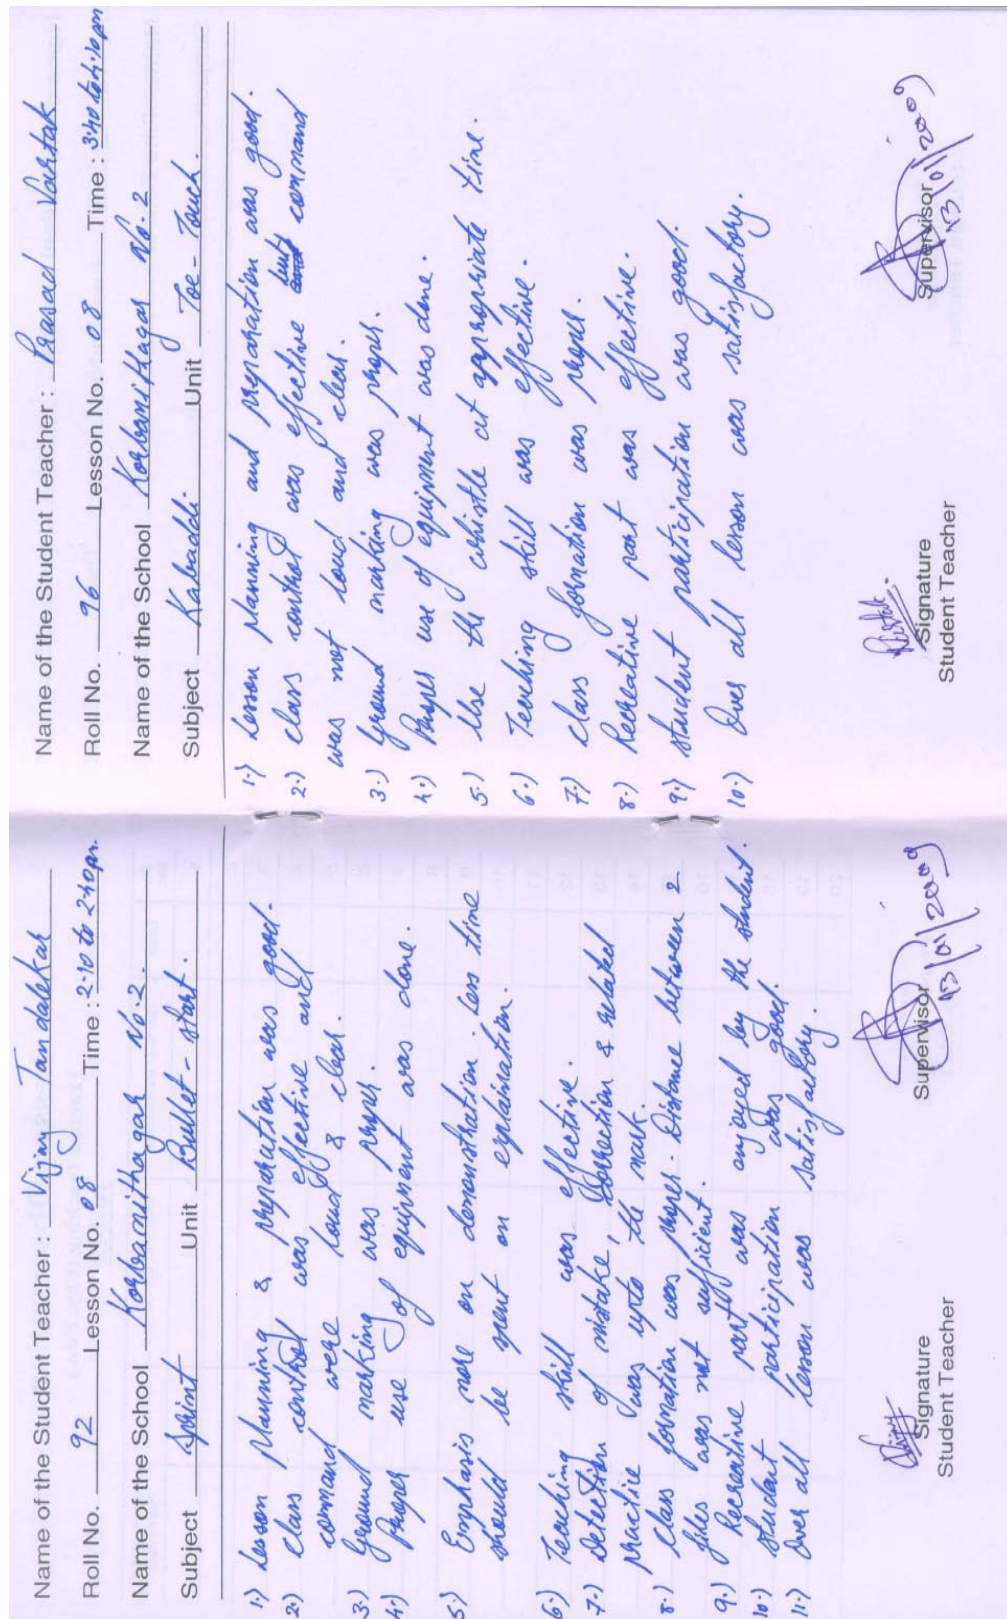 Name of the Student Teacher : Vijay Tandalekar
Roll No. 92 Lesson No. 08 Time : 2-10 to 2.40pm.
Name of the School Korbanithagar No.2.
Subject Sprint Unit Bullet - start.
1.) Lesson Planning & preparation was good.
2.) class control was effective and
command were loud & clear.
3.) Ground marking was proper.
4.) Proper use of equipment was done.
5.) Emphasis more on demonstration. Less time
should be spent on explaination.
6.) Teaching skill was effective.
7.) Detection of mistake, Correction & related
practice was upto the mark.
8.) class formation was proper. Distance between 2
files was not sufficient.
9.) Recreative part was enjoyed by the student.
10.) student participation was good.
11.) Over all lesson was satisfactory.
Signature
Student Teacher
Supervisor
13/01/2009
Name of the Student Teacher : Prasad Vartak
Roll No. 96 Lesson No. 08 Time : 3.40 to 4.10pm
Name of the School Korbanithagar No. 2
Subject Kabaddi. Unit Toe - Touch.
1.) Lesson planning and preparation was good.
2.) class control was effective but command
was not loud and clear.
3.) Ground marking was proper.
4.) Proper use of equipment was done.
5.) Use the whistle at appropriate time.
6.) Teaching skill was effective.
7.) class formation was proper.
8.) Recreative part was effective.
9.) student participation was good.
10.) Over all lesson was satisfactory.
Signature
Student Teacher
Supervisor
13/01/2009